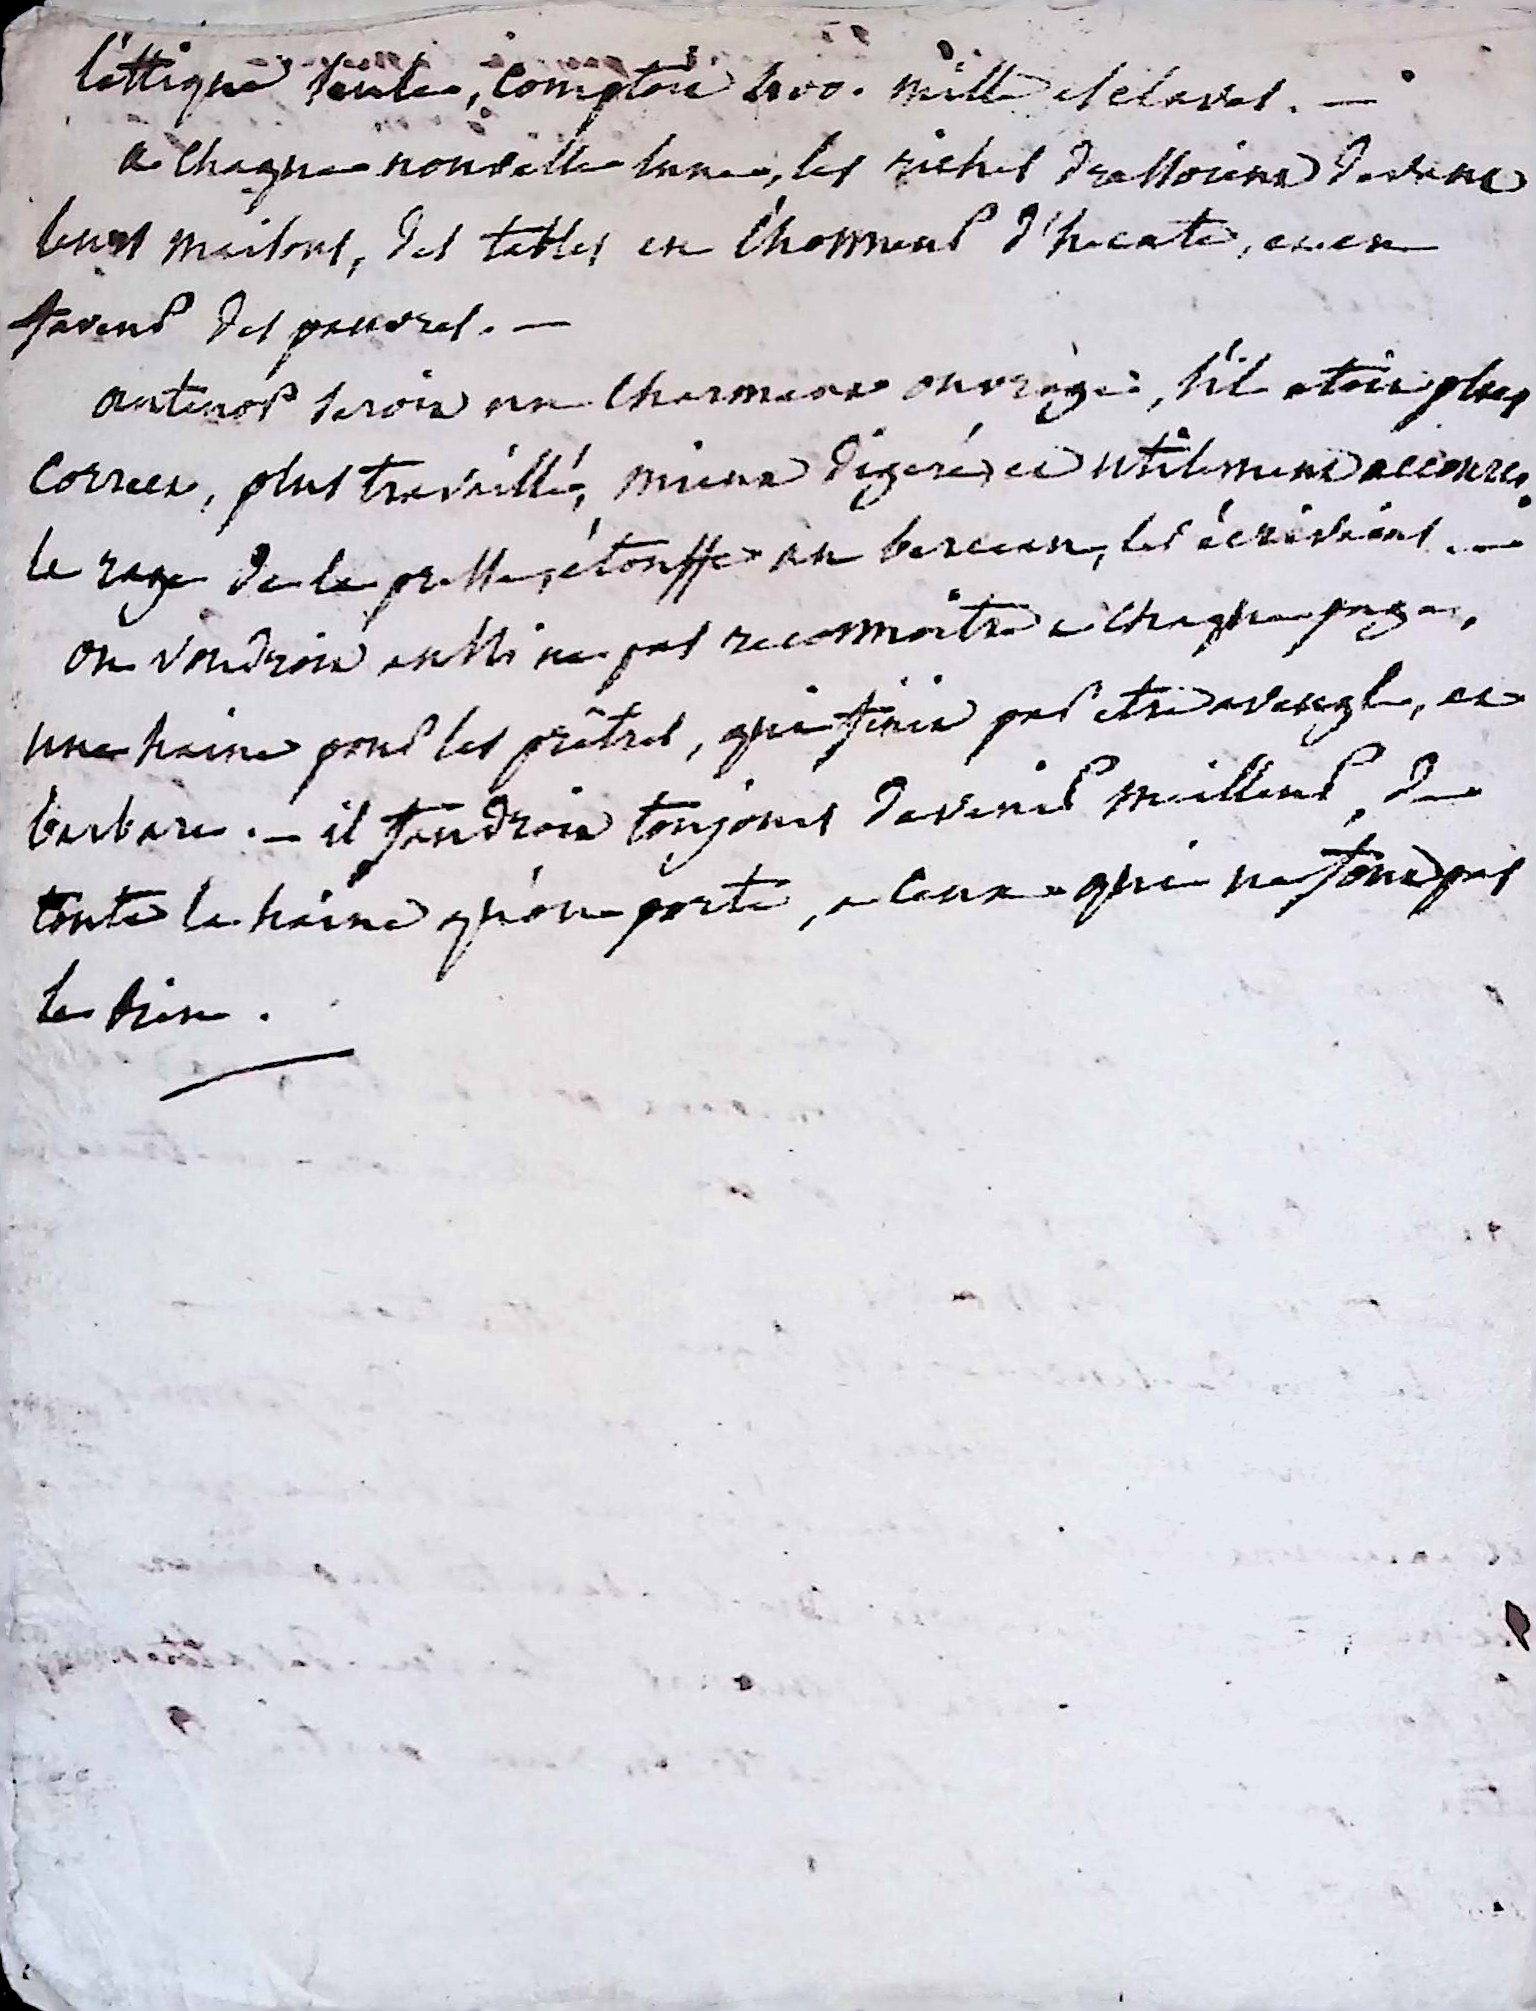 l'attique seule, comptoit 400. mille esclaves. —
a chaque nouvelle lune, les riches dressoient devant
leurs maisons, des tables en l'honneur d'hecate, et en
faveur des pauvres. —
antenor seroit un charmant ouvrage, s'il etoit plus
correct, plus travaillé, mieux digeré, et utilement accourci.
la rage de la presse, étouffe au berceau, les écrivains. —
on voudroit aussi ne pas reconnoitre a chaque page,
une haine pour les prêtres, qui finit par etre aveugle, et
barbare. — il faudroit toujours devenir meilleur, de
toute la haine qu'on porte, a ceux qui ne font pas
le bien.